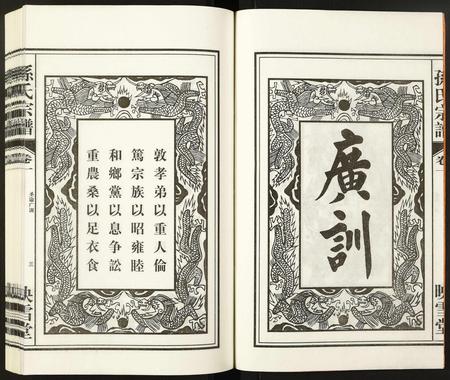 孫氏宗譜
卷一
映雪堂
廣訓
敦孝弟以重人倫
篤宗族以昭雍睦
和鄉黨以息争訟
重農桑以足衣食
孫氏宗譜
卷一
圣谕广训
三
映雪堂